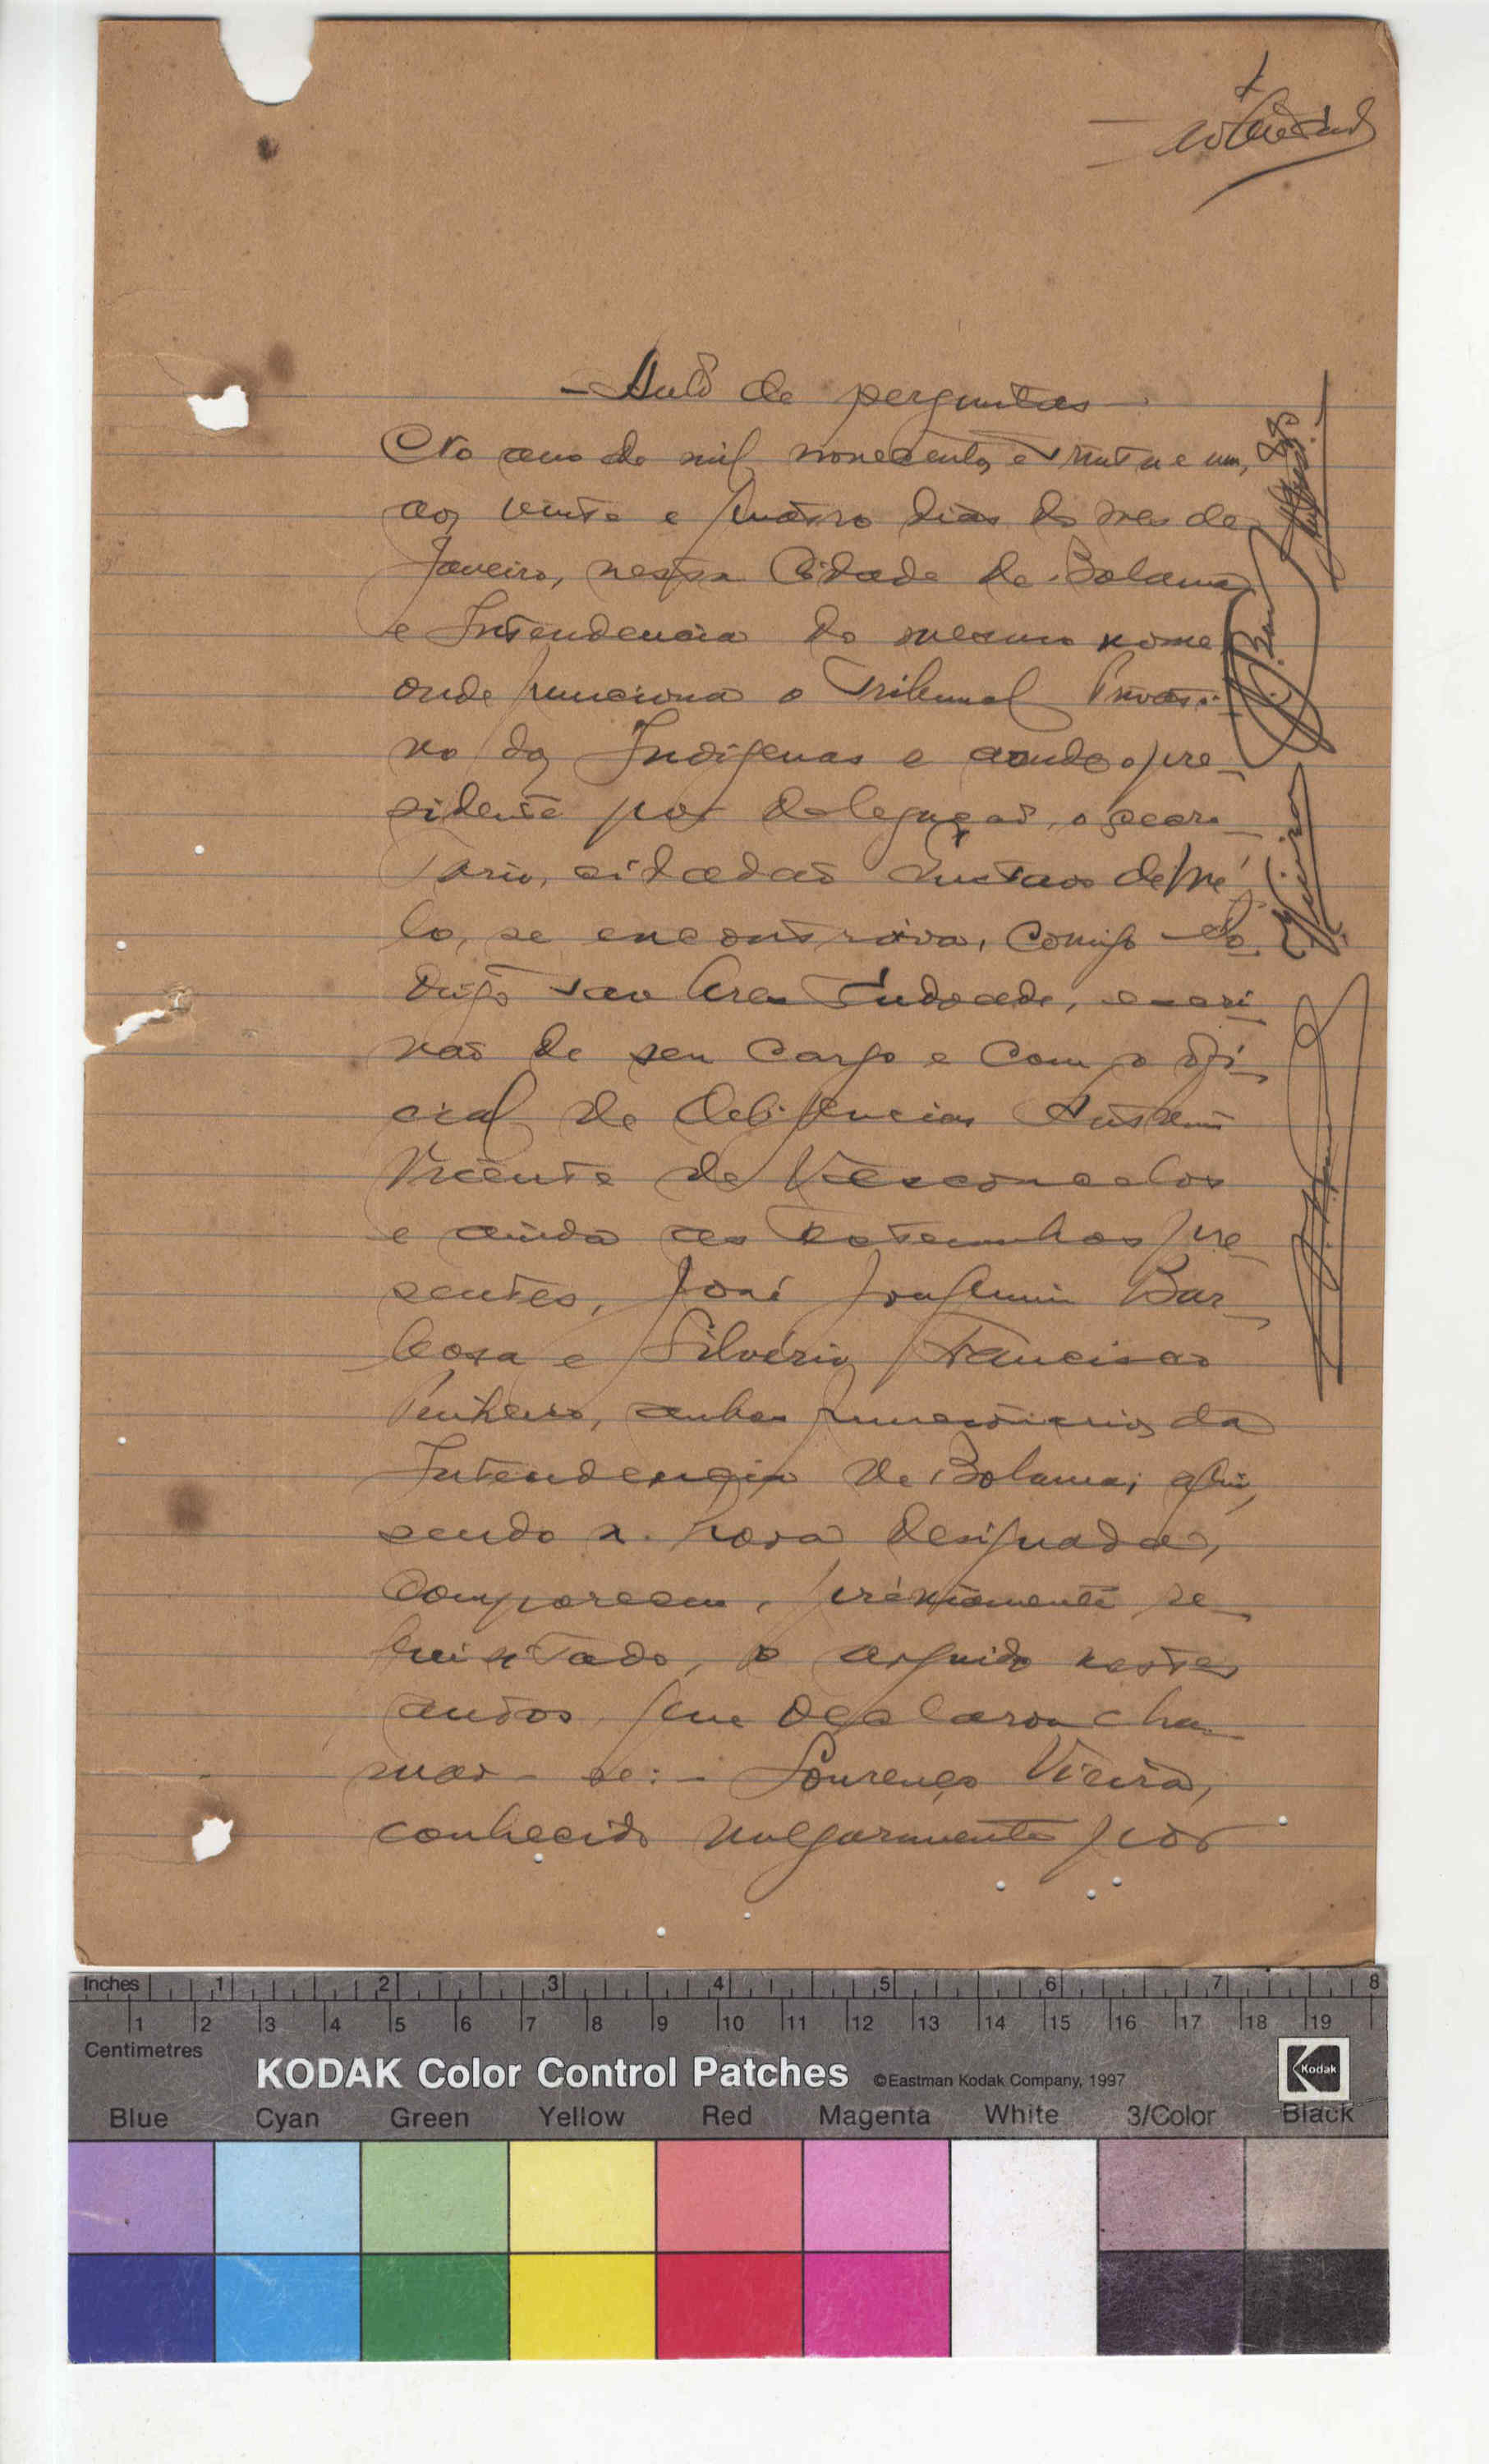 - Auto de perguntas -
No ano de mil novecentos e trinta e um,
aos vinte e quatro dias do mes de
Janeiro, nesta Cidade de Bolama
e Intendencia do mesmo nome
onde funciona o Tribunal Privati-
vo dos Indigenas e aonde o pre-
sidente por delegação, o secre-
tario, cidadão Gustavo de Mé-
lo, se encontrava, comigo
escri-
vão de seu cargo e com o ofi-
cial de deligencias
Vicente de Vasconcelos
e ainda as testemunhas pre-
sentes, José Bar-
bosa e Silvério Francisco
Pinheiro, ambos funcionarios da
Intendencia de Bolama; aqui,
sendo a hora designada,
compareceu, préviamente re-
quisitado, o arguido nestes
autos, que declarou cha-
mar-se: - Lourenço Vieira,
conhecido vulgarmente por
Inches 1 2 3 4 5 6 7 8
1 2 3 4 5 6 7 8 9 10 11 12 13 14 15 16 17 18 19
Centimetres
KODAK Color Control Patches ©Eastman Kodak Company, 1997 Kodak
Blue Cyan Green Yellow Red Magenta White 3/Color Black